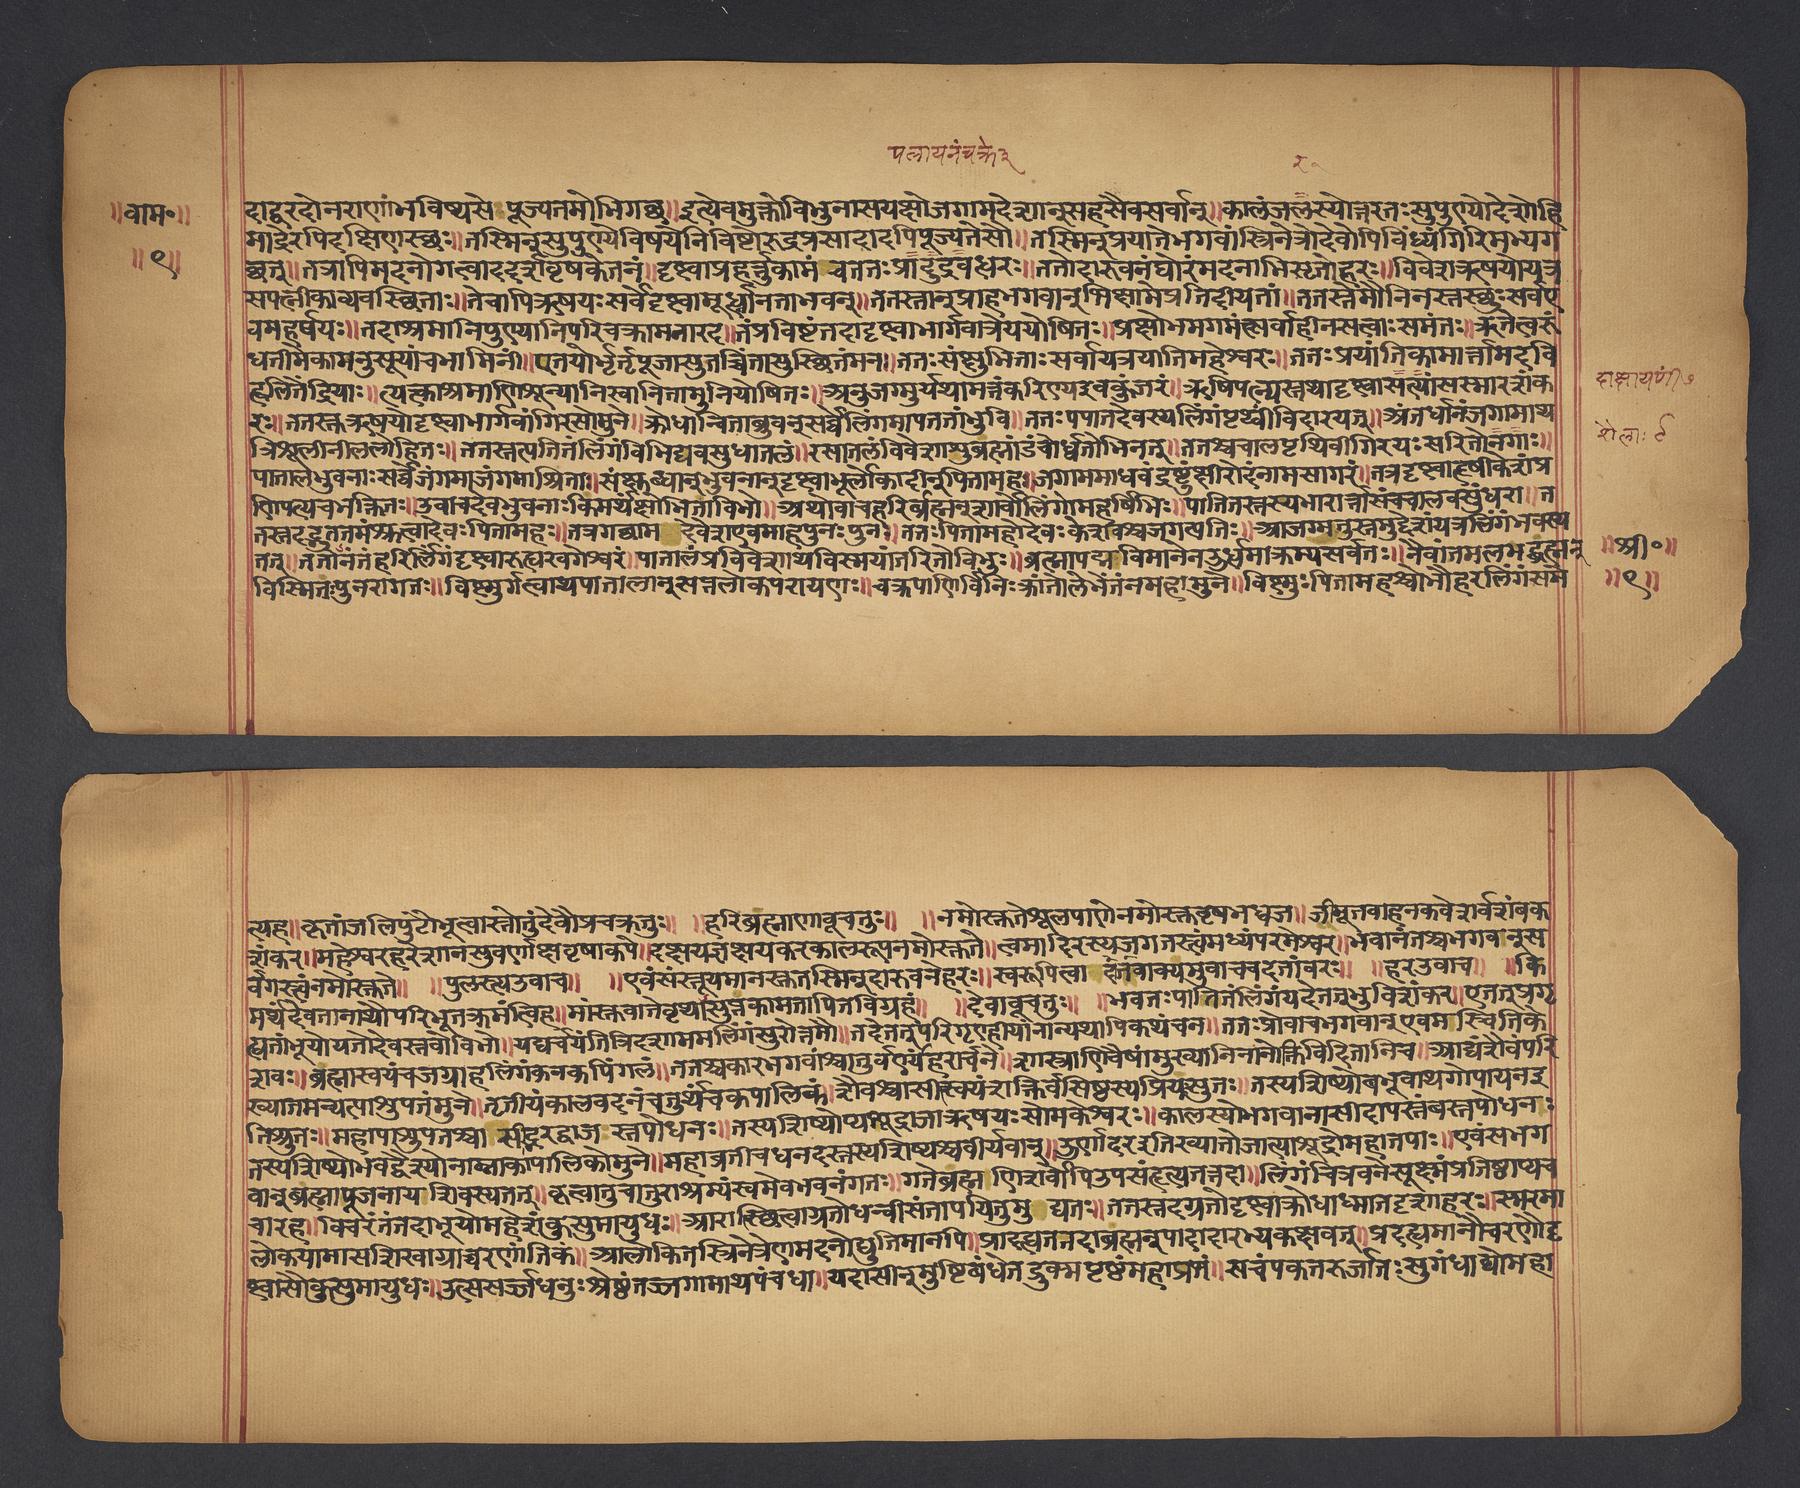 पलायनंचक्रे३
॥वाम॰॥
॥९॥
दाद्वरदोनराणांभविष्यसे पूज्यतमोभिगच्छ॥इत्येवमुक्तोविभुनासयक्षोजगामदेशान्सहसैवसर्वान्॥कालंजलस्योत्तरतःसुपुण्योदेशोहि
माद्रेरपिदक्षिणास्थः॥तस्मिन्सुपुण्येविषयेनिविष्टोरुद्रप्रसादादपिपूज्यतेसौ॥तस्मिन्प्रयातेभगवांस्त्रिनेत्रोदेवोपिविंध्यंगिरिमभ्यग
च्छत्॥तत्रापिमदनोगत्वाददर्शवृषकेतनं॥दृष्ट्वाप्रहर्त्तुकामं चततःप्रादुद्रवद्धरः॥ततोदारुवनंघोरंमदनाभिसृतोहरः॥विवेशऋषयोयत्र
सपत्नीकाव्यवस्थिताः॥तेचापिऋषयःसर्वेदृष्ट्वामूर्ध्नानताभवन्॥ततस्तान्प्राहभगवान्भिक्षामेप्रतिदीयतां॥ततस्तेमौनिनस्तस्थुःसर्वए
वमहर्षयः॥तदाश्रमानिपुण्यानिपरिचक्रामनारद॥तंप्रविष्टंतदादृष्ट्वाभार्गवात्रेययोषितः॥प्रक्षोभमगमंत्सर्वाहीनसत्वाःसमंततः॥ऋतेत्वरुं
धतीमेकामनुसूयांचभामिनीं॥एतयोर्भृर्तृपूजासुतच्चिंतासुस्थितंमनः॥ततःसंक्षुभिताःसर्वायत्रयातिमहेश्वरः॥ततःप्रयांतिकामार्त्तामदवि
ह्वलितेंद्रियाः॥त्यक्त्वाश्रमाणिशून्यानिस्वानितामुनियोषितः॥अनुजग्मुर्यथामत्तंकरिण्यइवकुंजरं॥ऋषिपत्न्यस्तथादृष्ट्वासत्यांसस्मारशंक
रः॥ततस्तुऋषयोदृष्ट्वाभार्गवांगिरसोमुने॥क्रोधान्विताब्रुवन्सर्वेलिंगमापततांभुवि॥ततःपपातदेवस्यलिंगंपृथ्वींविदारयत्॥अंतर्धानंजगामाथ
त्रिशूलीनीललोहितः॥ततस्तत्पतितंलिंगंविभिद्यवसुधातलं॥रसातलंविवेशाशुब्रह्मांडंचोर्ध्वतोभिनत्॥ततश्चचालपृथिवीगिरयःसरितोनगाः॥
पातालभुवनाःसर्वेजंगमाजंगमाश्रिताः॥संक्षुब्धान्भुवनान्दृष्ट्वाभूर्लोकादीन्पितामहः॥जगाममाधवंद्रष्टुंक्षीरोदंनामसागरं॥तत्रदृष्ट्वाहृषीकेशंप्र
णिपत्यचभक्तितः॥उवाचदेवभुवनाःकिमर्थंक्षोभिताविभो॥अथोवाचहरिर्ब्रह्मन्शार्वोलिंगोमहर्षिभिः॥पातितस्तस्यभारार्त्तासंचचालवसुंधरा॥त
तस्तदद्भुततमंश्रुत्वादेवःपितामहः॥तत्रगच्छाम देवेशएवमाहपुनःपुनः॥ततःपितामहोदेवःकेशवश्चजगत्पतिः॥आजग्मतुस्तमुद्देशंयत्रलिंगंभवस्य
तत्॥ततोनंतंहरिर्लिंगंदृष्ट्वारुह्यखगेश्वरं॥पातालंप्रविवेशाथविस्मयांतरितोविभुः॥ब्रह्मापद्मविमानेनऊर्ध्वमाक्रम्यसर्वतः॥नैवांतमलभद्ब्रह्मन्
विस्मितःपुनरागतः॥विष्णुर्गत्वाथपातालान्सप्तलोकपरायणः॥चक्रपाणिर्विनिःक्रांतोलेभेंतंनमहामुने॥विष्णुःपितामहश्चोभौहरलिंगंसमे
दाक्षायणीं७
शैलाः८
॥श्री॰॥
॥९॥
त्यह॥कृतांजलिपुटौभूत्वास्तोतुंदेवौप्रचक्रतुः॥ ॥हरिब्रह्माणावूचतुः॥ ॥नमोस्तुतेशूलपाणेनमोस्तुतेवृषभध्वज॥जीमूतवाहनकवेशर्वत्र्यंबक
शंकर॥महेश्वरहरेशानसुवर्णाक्षवृषाकपे॥दक्षयज्ञक्षयकरकालरूपनमोस्तुते॥त्वमादिरस्यजगतस्त्वंमध्यंपरमेश्वर॥भवानंतश्चभगवान्स
र्वगस्त्वंनमोस्तुते॥ ॥पुलस्त्यउवाच॥ ॥एवंसंस्तूयमानस्तुतस्मिन्दारुवनेहरः॥स्वरूपित्वा दंतंवाक्यमुवाचवदतांवरः॥ ॥हरउवाच॥ ॥कि
मर्थंदेवतानाथौपरिभूतक्रमंत्विह॥मांस्तुवातेवृथासुस्तंकामतापितविग्रहं॥ ॥देवावूचतुः॥ ॥भवतःपातितंलिंगंयदेतत्भुविशंकर॥एतत्प्रगृ
ह्यतांभूयोयतोदेवस्तंवोविभो॥यद्यर्चयंतित्रिदशाममलिंगंसुरोत्तमौ॥तदेतत्परिगृण्हीयांनान्यथापिकथंचन॥ततःप्रोवाचभगवान्एवमस्त्वितिके
शवः॥ब्रह्मास्वयंचजग्राहलिंगंकनकपिंगलं॥ततश्चकारभगवांश्चातुर्वर्ण्यंहरार्चने॥शास्त्राणिचैषांमुख्यानिनानोक्तिविदितानिच॥आद्यंशैवंपरि
ख्यातमन्यत्पाशुपतंमुने॥तृतीयंकालवदनंचतुर्थंचकपालिकं॥शैवश्चासीत्स्वयंशक्तिर्वसिष्ठस्यप्रियःसुतः॥तस्यशिष्योबभूवाथगोपायनइ
तिश्रुतः॥महापाशुपतश्चा सीद्भरद्वाजस्तपोधनः॥तस्यशिष्योप्यभूद्राजाऋषयःसोमकेश्वरः॥कालस्योभगवानासीदापस्तंबस्तपोधनः
तस्यशिष्योभवद्वैश्योनाम्नाकापालिकोमुने॥महाव्रतीचधनदस्तस्यशिष्यश्चवीर्यवान्॥ऊर्णोदरइतिख्यातोजात्याशूद्रोमहातपाः॥एवंसभग
वान्ब्रह्मापूजनायशिवस्यतत्॥कृत्वातुचातुराश्रम्यंस्वमेवभवनंगतः॥गतेब्रह्मणिशर्वोपिउपसंहृत्यतत्तदा॥लिंगंचित्रवनेसूक्ष्मंप्रतिष्ठाप्यच
चारह॥विचरंतंतदाभूयोमहेशंकुसुमायुधः॥आरात्स्थित्वाग्रतोधन्वीसंतापयितुमु द्यतः॥ततस्तदग्रतोदृष्ट्वाक्रोधाध्मातदृशाहरः॥स्मरमा
लोकयामासशिखाग्राच्चरणांतिकं॥आलोकितस्त्रिनेत्रेणमदनोद्युतिमानपि॥प्रादह्यततदाब्रह्मन्पादादारभ्यकक्षवत्॥प्रदह्यमानौचरणौदृ
ष्ट्वासौकुसुमायुधः॥उत्ससर्ज्जधनुःश्रेष्ठंतज्जगामाथपंचधा॥यदासीन्मुष्टिबंधंतद्रुक्मपृष्ठंमहाप्रभं॥सचंपकतरुर्जातःसुगंधाढ्योमहा